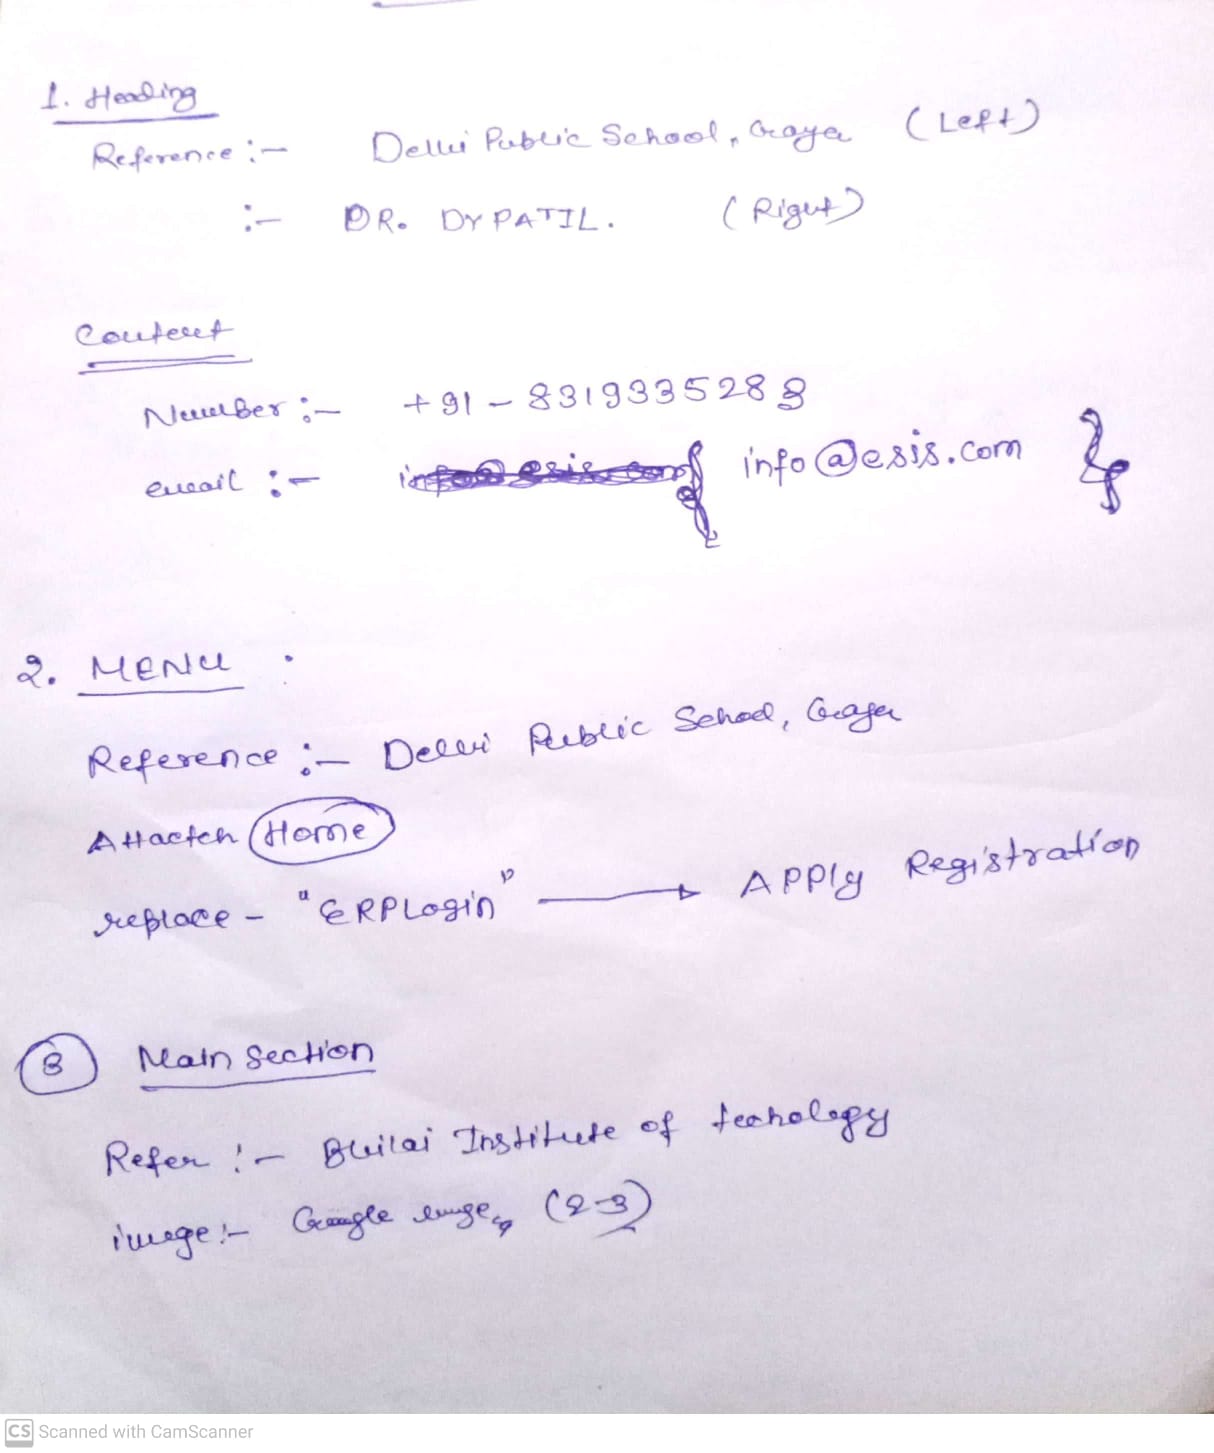 1. Heading
Reference :- Delhi Public School, Gaya (Left)
:- DR. DY PATIL. (Right)
Content
Number :- +91 - 8319335288
email :- info@esis.com
2. MENU :
Reference :- Delhi Public School, Gaya
Attactch Home
replace - "ERPLogin" → Apply Registration
3 Main Section
Refer :- Bhilai Institute of techology
image :- Google image, (2-3)
CS Scanned with CamScanner